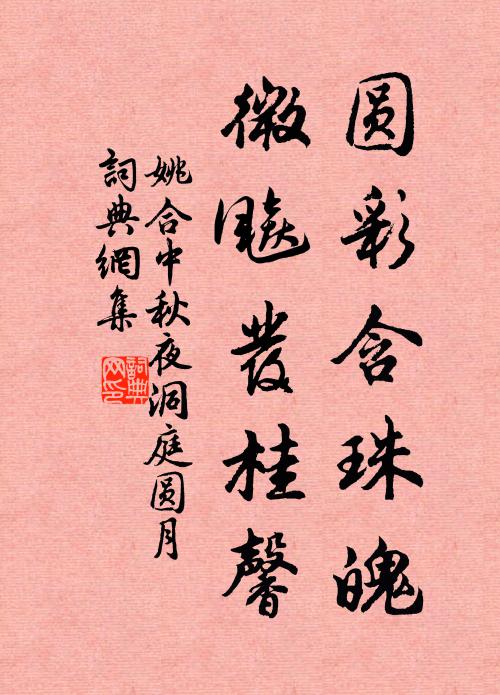 圆彩含珠魄
微飚發桂馨
姚合中秋夜洞庭圆月
詞典網集
詞典网印